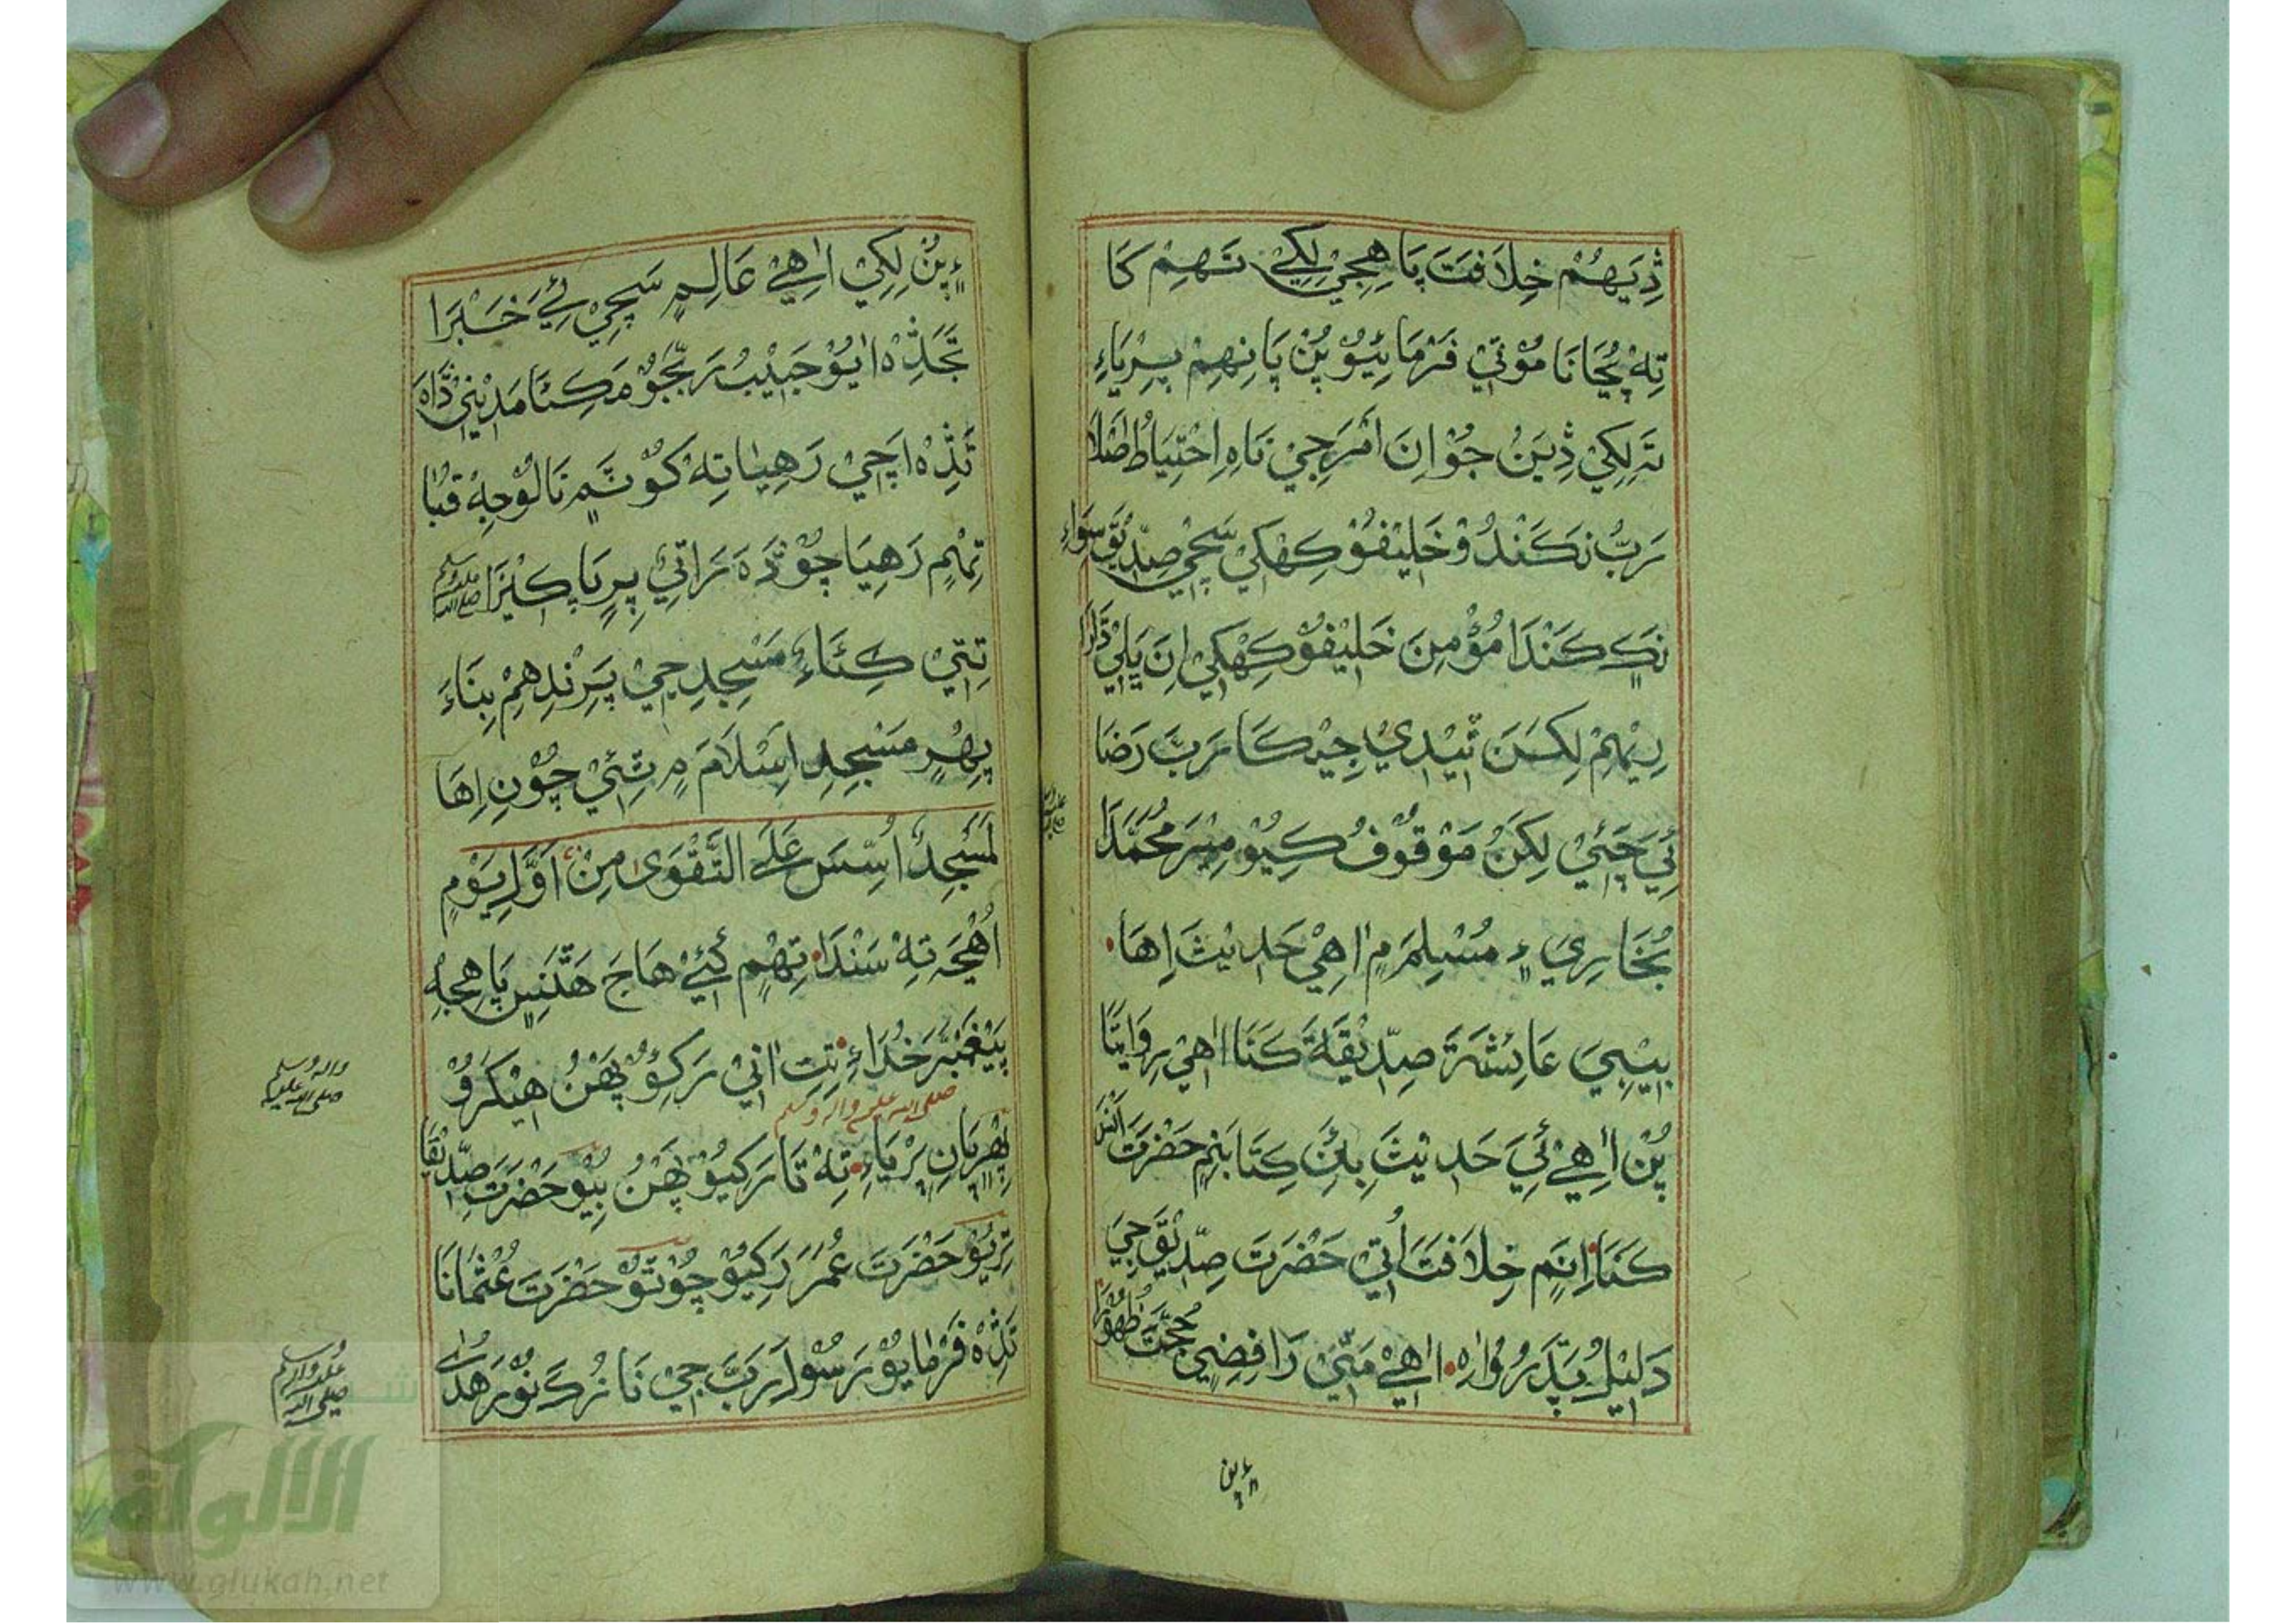 ڎِيَهُمْ خِلَافَتَ پَاهِجِيْ لِکِيْ تَهِمْ کَا
تِهْ پُڄَانَا مُوْتِيْ فَرْمَائِيُوْ پُنْ پَانِهِمْ پِرِيَاءِ
تَہ لِکِيْ ڎِيَنْ جُوْ اِنَ اَمْرَجِيْ نَاہِ اِحْتِيَاطُ صَلَا
رَبُّ نَکَنْدُوْ خَلِيْفَوْ کِهْکِيْ سَچِيْ صِدِّيْقَ سَوَاءِ
نَکِ کَنْدَا مُؤْمِنَ خَلِيْفَوْ کِهْکِيْ اِنَ پَلِيْ ڌَارَا
رِيْهِمْ لِکَنَ تِيْدِيْ جِيْکَا رَبَّ رَضَا
ئِي چَئِيْ لِکَنُ مَوْقُوْفُ کِيُوْ مِيْرَ مُحَمَّدَا
بُخَارِيَ ۽ مُسْلِمَ مِ اٰهِيْ حَدِيْثَ اِهَا
بِيْبِيَ عَائِشَةَ صِدِّيْقَةَ کَنَا اٰهِيْ رِوَايَتَا
پُنْ اٰهِيْ ئِيَ حَدِيْثَ بِئَنِ کِتَابَنِمِ حَضْرَتَ اَنَسَ
کَنَا اِنَمِ خِلَافَتَ اُتِيْ حَضْرَتَ صِدِّيْقَ جِيَ
دَلِيْلُ پَڌَرُوْ اٰهِ اٰهِيْ مَتِيْ رَافِضِيِ حُجَّتَ ظُهُوْرَا
۽ پن
۽ پُنْ لِکِيْ اٰهِيْ عَالِمِ سَچِيْ ئِيَ خَبَرَا
تَجَڎِہْ اٰيُوْ حَبِيْبُ رَبَّجُوْ مَکِئَا مَدِيْنِيْ ڌَاہَ
تَڎِہْ اَچِيْ رَهِيَا تِهْ کَوْتَمِ نَالُوْ جِهْ قُبَا
تِهْمِ رَهِيَا چَوْڎَہَ رَاتِيْ پِرِ پَاکِيْزَا ﷺ
تِتِيْ کِئَاءِ مَسْجِدِ جِيْ پَرِنْدِهِمْ بِنَاءَ
پِهْرِ مَسْجِدِ اِسْلَامَ مِ ٿِئِيْ چُوْنِ اِهَا
لَمَسْجِدٌ اُسِّسَ عَلَى التَّقْوَىٰ مِنْ اَوَّلِ يَوْمٍ
اُهْجَہ تِهْ سَنْدَا تِهْمِ کَئِيْ هَاجَ هَٿَنِسِ پَاهِجِهْ
پَيْغَمْبَرَ خُدَاءِ تِتِ اٰنِيْ رَکِئُوْ پَهَنُ هِيْکَرُوْ
پِهْرِيَانِ پِرْيَاءِ تِهْ تَا رَکِيُوْ پَهَنُ بِيُوْ حَضْرَتَ صِدِّيْقَا
صلى الله عليه واله وسلم
تِرِيُوْ حَضْرَتَ عُمَرَ رَکِيُوْ چُوْتَوْ حَضْرَتَ عُثْمَانَا
تَڎِہْ فَرْمَايُوْ رَسُوْلَ رَبَّ جِيْ نَازُکَ نُوْرَ هُدٰى
صلى الله عليه واله وسلم
صلى الله عليه واله وسلم
الألوكة
www.alukah.net